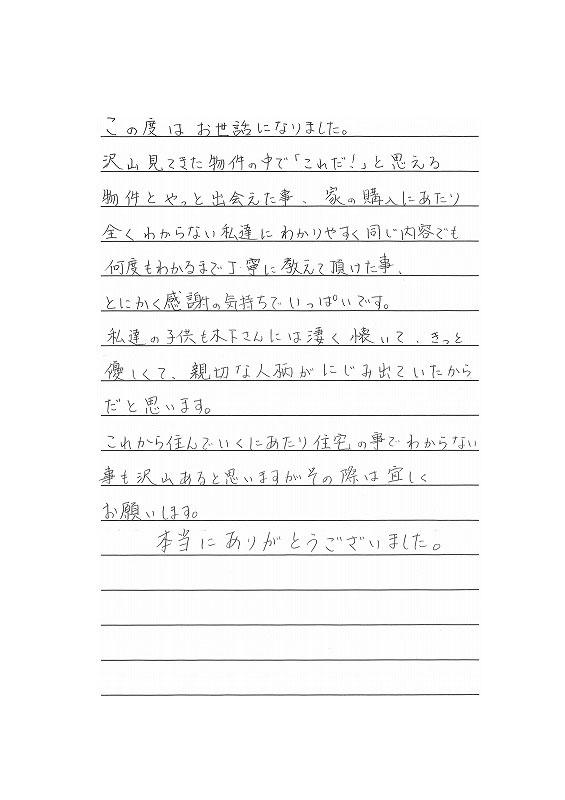 この度は お世話になりました。
沢山見てきた物件の中で「これだ!」と思える
物件とやっと出会えた事、家の購入にあたり
全くわからない私達にわかりやすく同じ内容でも
何度もわかるまで丁寧に教えて頂けた事、
とにかく感謝の気持ちでいっぱいです。
私達の子供も木下さんには凄く懐いて、きっと
優しくて、親切な人柄がにじみ出ていたから
だと思います。
これから住んでいくにあたり住宅の事でわからない
事も沢山あると思いますがその際は宜しく
お願いします。
本当にありがとうございました。